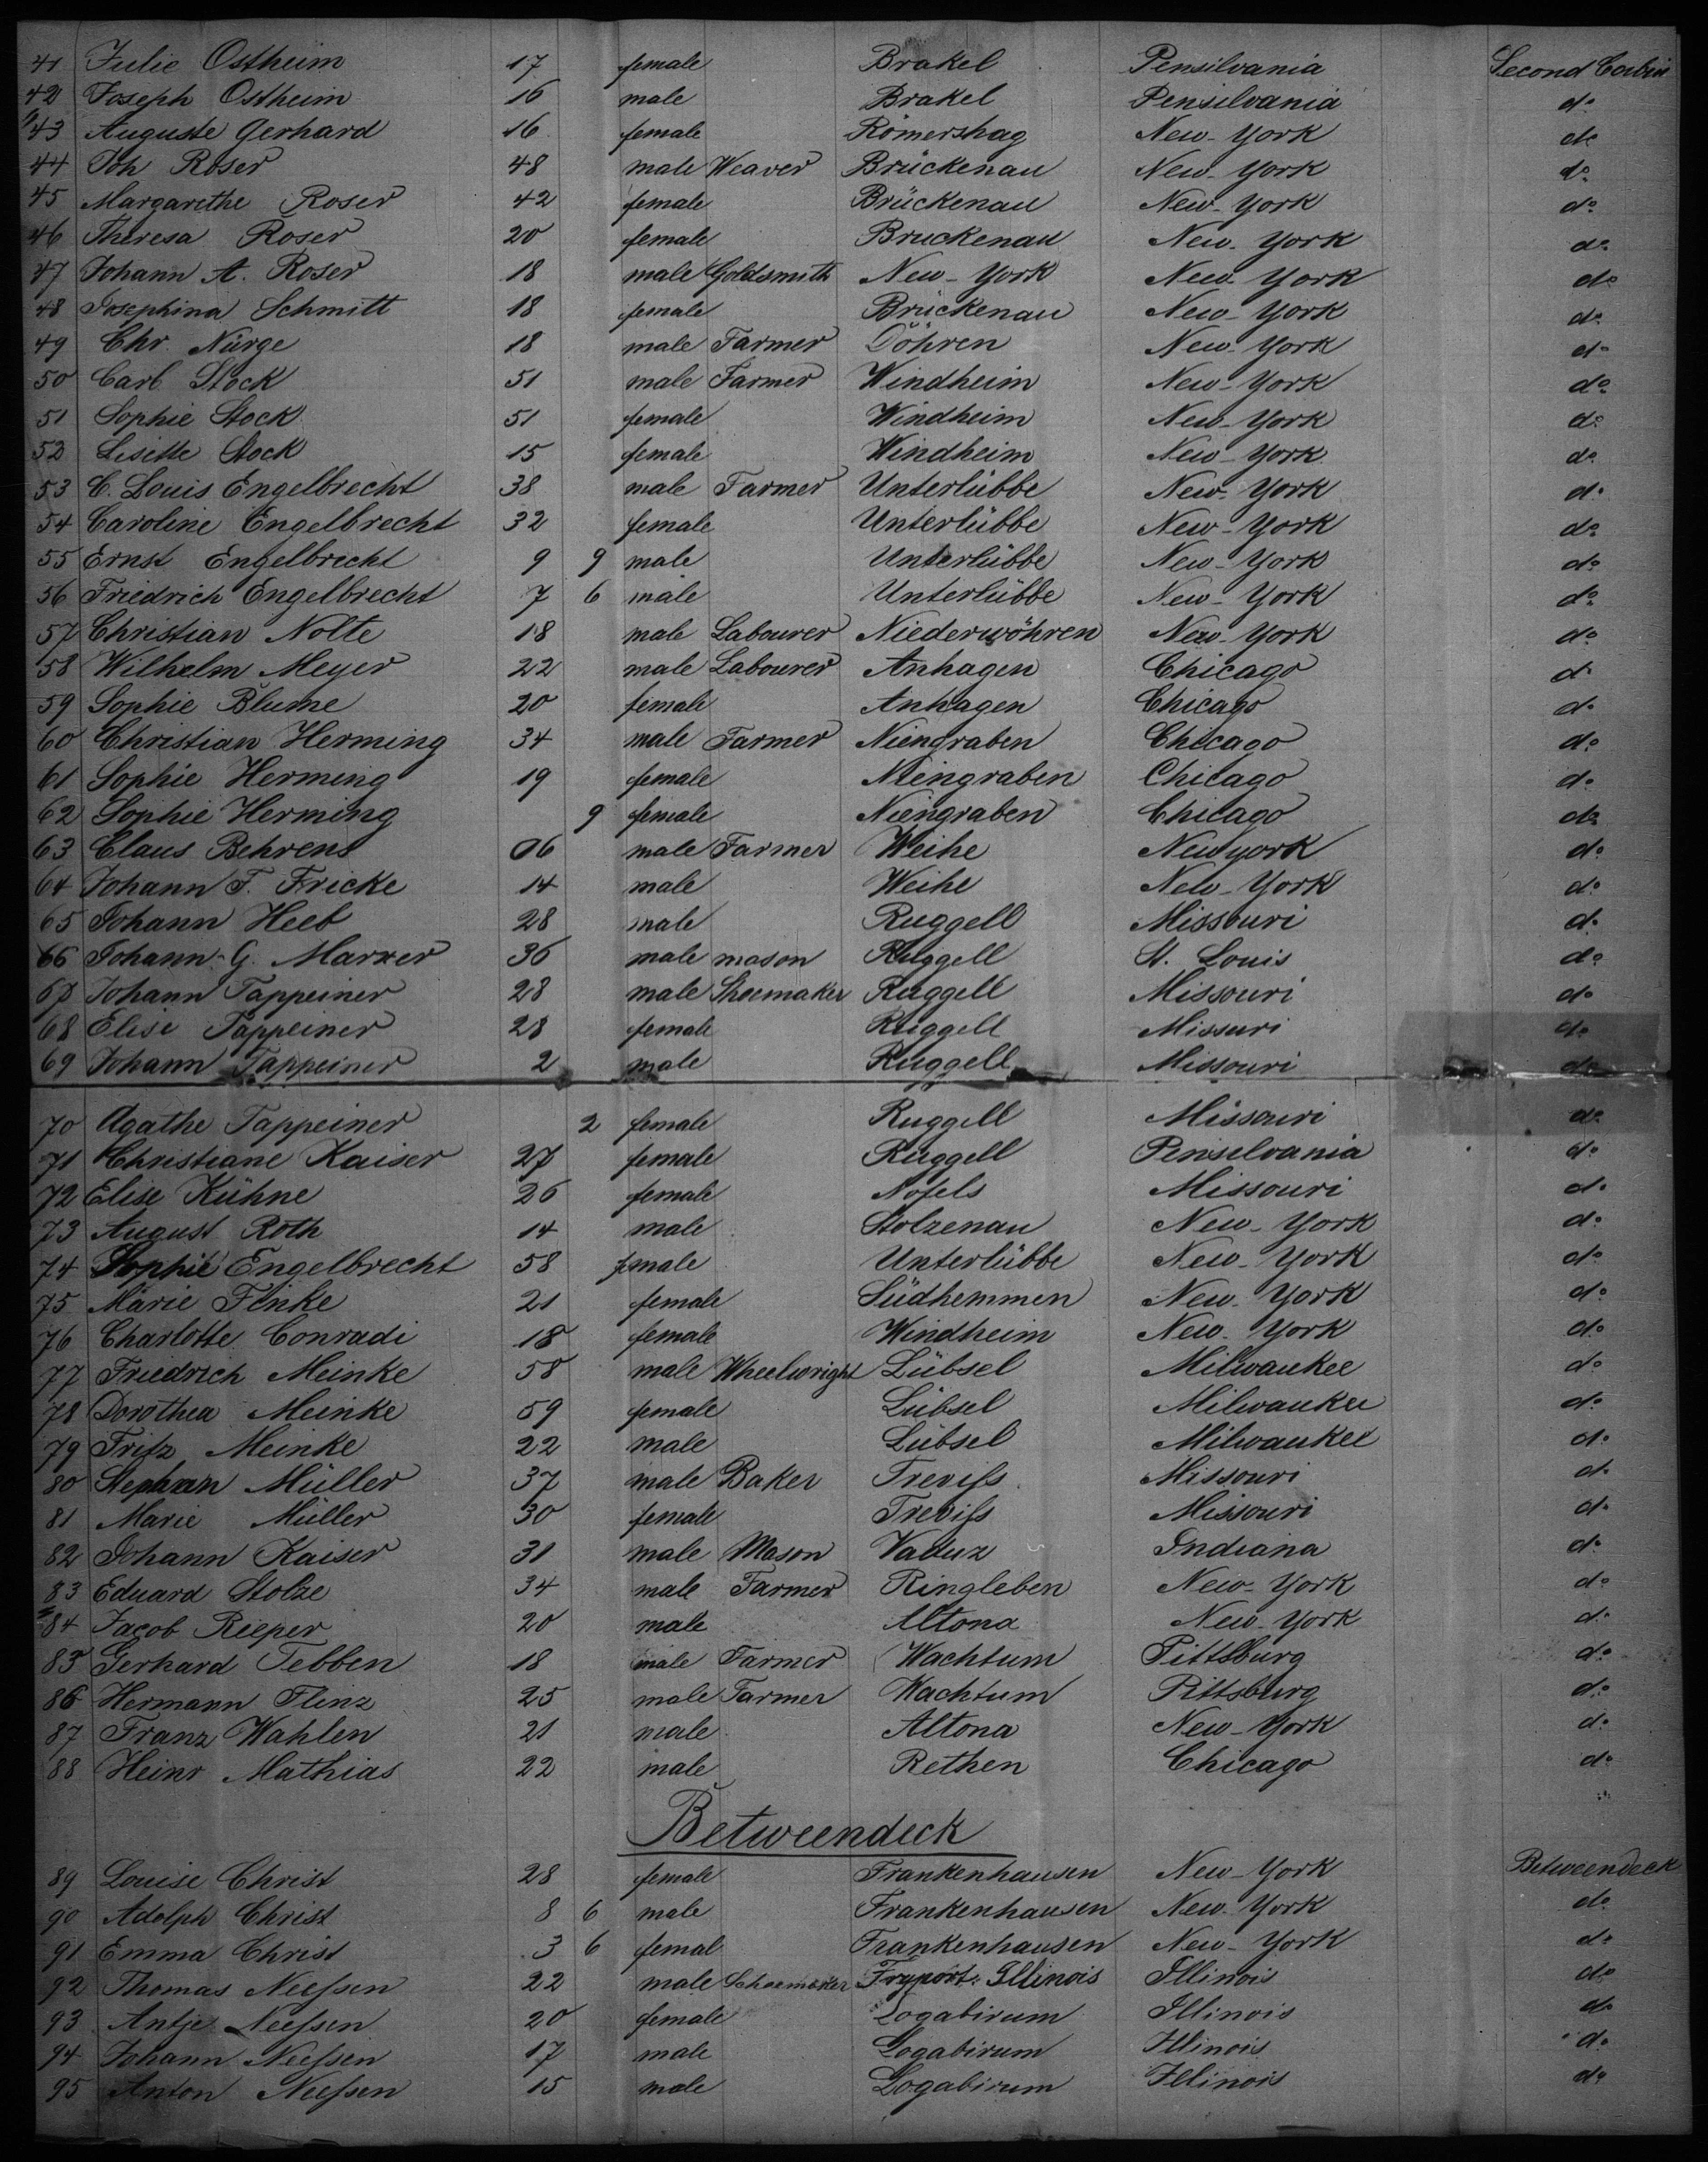 41 Julie Ostheim 17 female Brakel Pensilvania Second Cabin
42 Joseph Ostheim 16 male Brakel Pensilvania do
43 Auguste Gerhard 16 female Römershag New-York do
44 Joh Roser 48 male Weaver Brückenau New-York do
45 Margarethe Roser 42 female Brückenau New-York do
46 Theresa Roser 20 female Bruckenau New-York do
47 Johann A. Roser 18 male Goldsmith New-York New-York do
48 Josephina Schmitt 18 female Brückenau New-York do
49 Chr. Nürge 18 male Farmer Döhren New-York do
50 Carl Stock 51 male Farmer Windheim New-York do
51 Sophie Stock 51 female Windheim New-York do
52 Lisette Stock 15 female Windheim New-York do
53 C. Louis Engelbrecht 38 male Farmer Unterlübbe New-York do
54 Caroline Engelbrecht 32 female Unterlübbe New-York do
55 Ernst Engelbrecht 9 9 male Unterlübbe New-York do
56 Friedrich Engelbrecht 7 6 male Unterlübbe New-York do
57 Christian Nolte 18 male Labourer Niederwöhren New-York do
58 Wilhelm Meyer 22 male Labourer Anhagen Chicago do
59 Sophie Blume 20 female Anhagen Chicago do
60 Christian Herming 34 male Farmer Niengraben Chicago do
61 Sophie Herming 19 female Niengraben Chicago do
62 Sophie Herming 9 female Niengraben Chicago do
63 Claus Behrens 06 male Farmer Weihe Newyork do
64 Johann F. Fricke 14 male Weihe New-York do
65 Johann Heeb 28 male Ruggell Missouri do
66 Johann G. Marxer 36 male mason Ruggell St. Louis do
67 Johann Tappeiner 28 male Shoemaker Ruggell Missouri do
68 Elise Tappeiner 28 female Ruggell Missuri do
69 Johann Tappeiner 2 male Ruggell Missouri do
70 Agathe Tappeiner 2 female Ruggell Missouri do
71 Christiane Kaiser 27 female Ruggell Penselvania do
72 Elise Kühne 26 female Nofels Missouri do
73 August Roth 14 male Stolzenau New-York do
74 Sophie Engelbrecht 58 female Unterlübbe New-York do
75 Marie Finke 21 female Südhemmen New-York do
76 Charlotte Conradi 18 female Windheim New-York do
77 Friedrich Meinke 58 male Wheelwright Lübsel Milwaukee do
78 Dorothea Meinke 59 female Lübsel Milwaukee do
79 Fritz Meinke 22 male Lübsel Milwaukee do
80 Stephan Müller 37 male Baker Trevißs Missouri do
81 Marie Müller 30 female Trevißs Missouri do
82 Johann Kaiser 31 male Mason Vaduz Indiana do
83 Eduard Stolze 34 male Farmer Ringleben New-York do
84 Jacob Rieper 20 male Altona New-York do
85 Gerhard Tebben 18 male Farmer Wachtum Pittsburg do
86 Hermann Flinz 25 male Farmer Wachtum Pittsburg do
87 Franz Wahlen 21 male Altona New-York do
88 Heinr Mathias 22 male Rethen Chicago do
Betweendeck
89 Louise Christ 28 female Frankenhausen New-York Betweendeck
90 Adolph Christ 8 6 male Frankenhausen New-York do
91 Emma Christ 3 6 femal Frankenhausen New-York do
92 Thomas Neeßen 22 male Schoemaker Fryport. Illinois Illinois do
93 Antje Neeßen 20 female Logabirum Illinois do
94 Johann Neeßen 17 male Logabirum Illinois do
95 Anton Neeßen 15 male Logabirum Illinois do